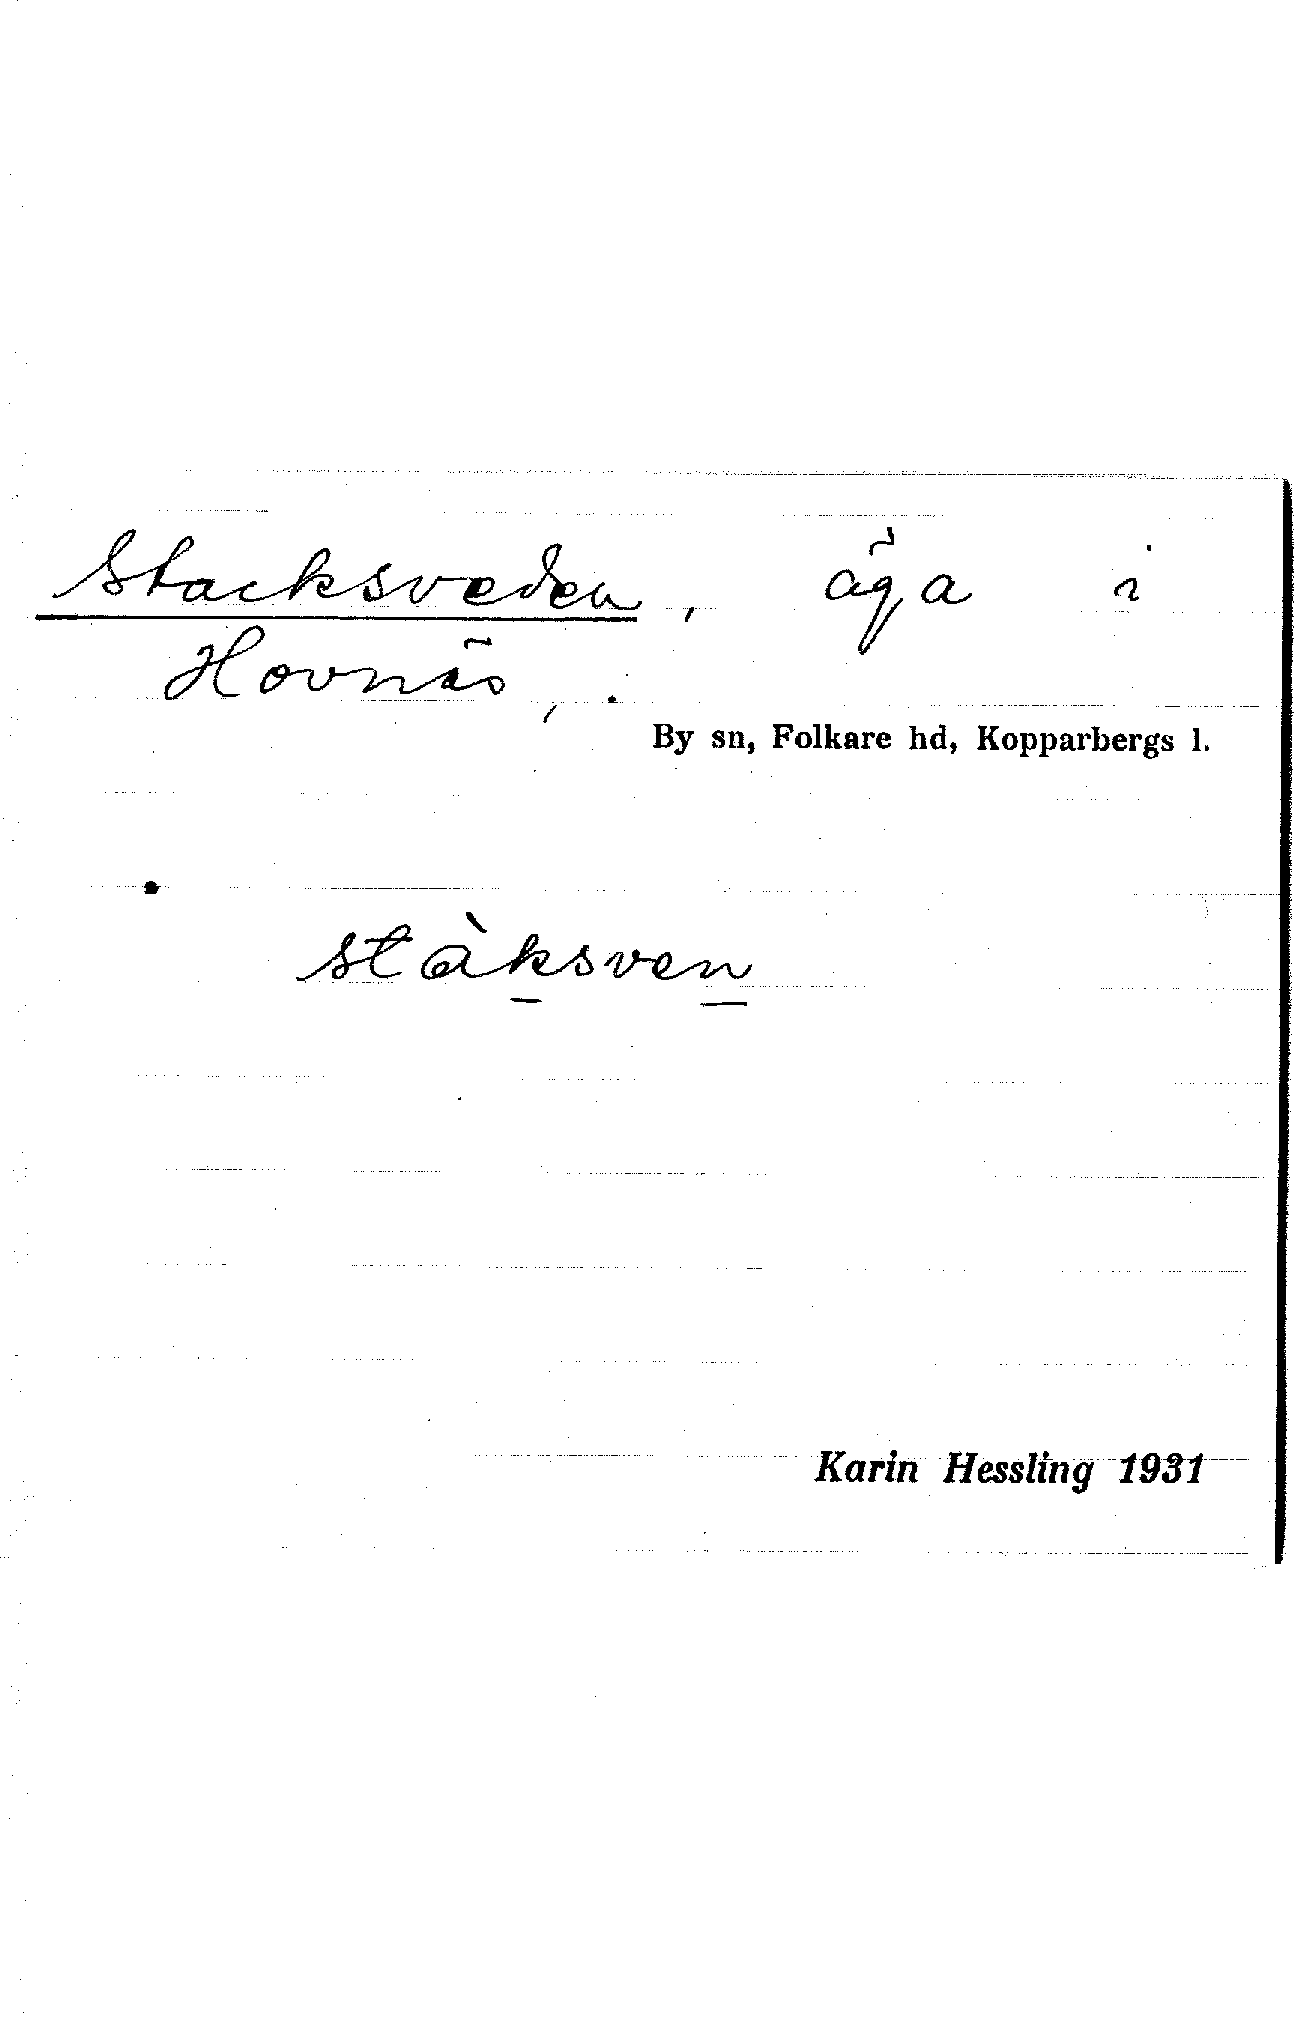 Stacksveden, äga i
Hovnäs, .
By sn, Folkare hd, Kopparbergs l.
stàksven
Karin Hessling 1931